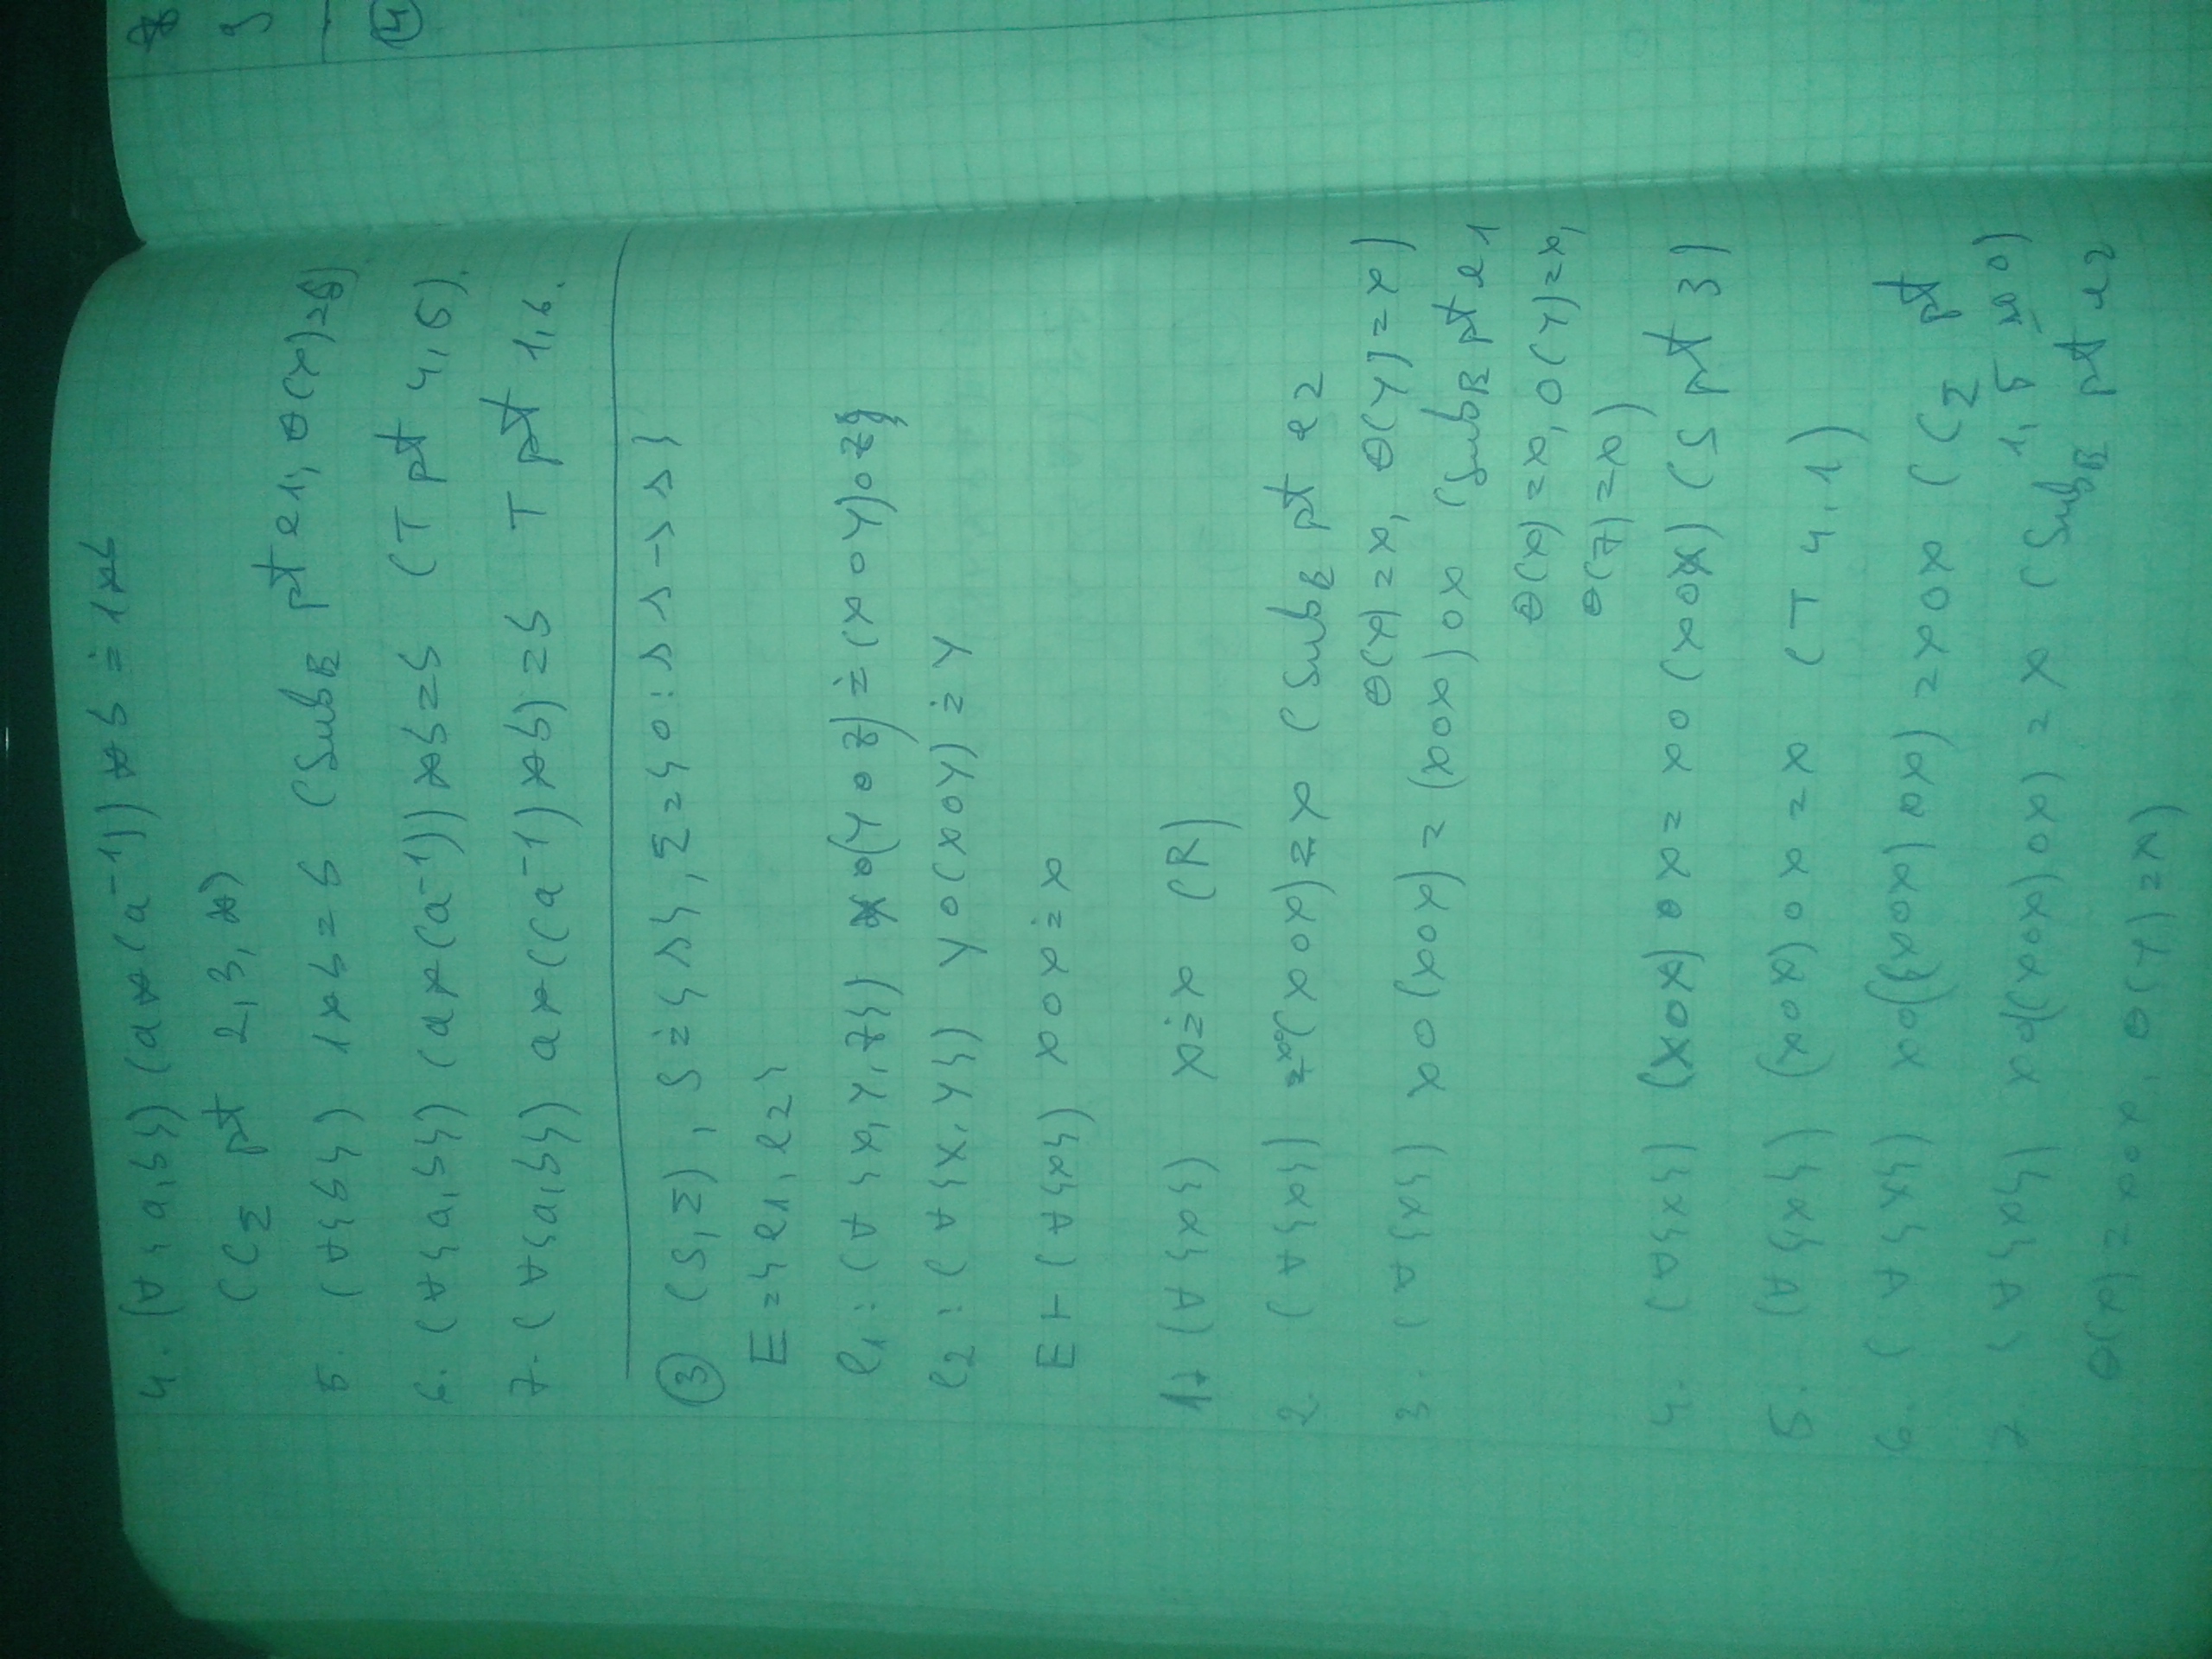 4. (∀{a,b}) (a*(a⁻¹))*b ≐ 1*b
(C_Σ pt 2,3,*)
5. (∀{b}) 1*b=b (Sub_E pt e1; θ(x)=b)
6. (∀{a,b}) (a*(a⁻¹))*b=b (T pt 4,5).
7. (∀{a,b}) a*((a⁻¹)*b)=b T pt 1,6.
③ (S,Σ), S≐{s}, Σ={o: s s→s}
E={e1, e2}
e1: (∀{x,y,z}) x o(y o z) ≐ (x o y) o z}
e2: (∀{x,y}) y o (x o y) ≐ y
E ⊢ (∀{x}) x o x ≐ x
1. (∀{x}) x ≐ x (R)
2. (∀{x}) x o (x o x) = x (Sub_E pt e2
θ(x)=x, θ(y)=x)
3. (∀{x}) x o (x o x) = (x o x) o x (Sub_E pt e1
θ(x)=x, θ(y)=x,
θ(z)=x)
4. (∀{x}) (x o x) o x = x o (x o x) (S pt 3)
5. (∀{x}) (x o x) o x = x (T 4,1)
6. (∀{x}) x o((x o x) o x) = x o x (C_Σ pt
1, 5 o)
7. (∀{x}) x o((x o x) o x) = x (Sub_E pt e2
θ(x) = x o x, θ(y)=x)
④